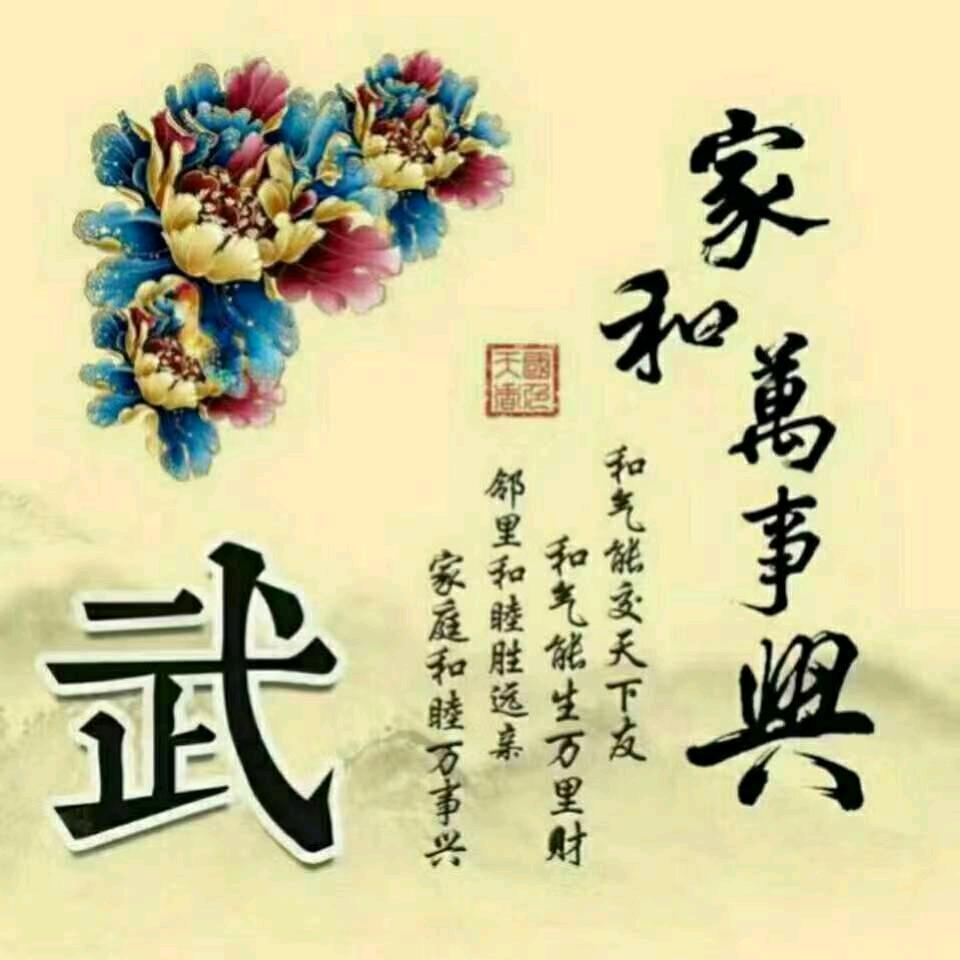 家和萬事興
和气能交天下友
和气能生万里财
邻里和睦胜远亲
家庭和睦万事兴
國色天香
武